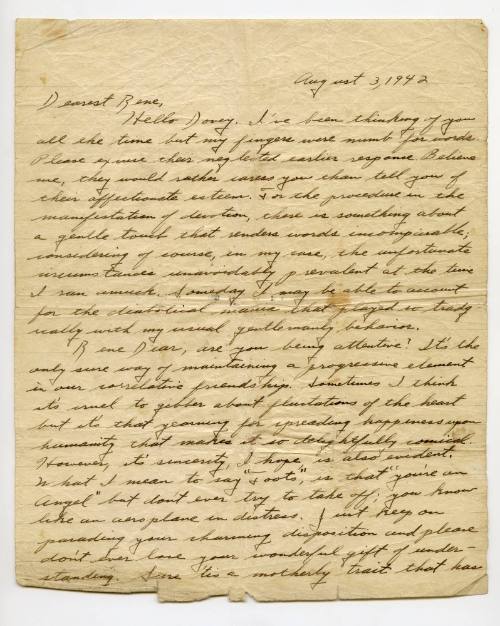 August 3, 1942
Dearest Rene,
Hello Dovey. I've been thinking of you
all the time but my fingers were numb for words.
Please excuse their neglected earlier response. Believe
me, they would rather caress you than tell you of
their affectionate esteem. For the procedure in the
manifestation of devotion, there is something about
a gentle touch that renders words incomparable;
considering of course, in my case, the unfortunate
circumstances unavoidably prevalent at the time
I ran amuck. Someday I may be able to account
for the diabolical mania that played so
with my usual gentlemanly behavior.
Rene Dear, are you being attentive? It's the
only sure way of maintaining a progressive element
in our correlative friendship. Sometimes I think
it's cruel to gibber about flirtations of the heart
but it's that yearning for spreading happiness upon
humanity that makes it so delightfully comical.
However, it's sincerity, I hope, is also evident.
What I mean to say "Toots", is that "you're an
Angel" but don't ever try to take off, you know
like an aeroplane in distress. Just keep on
parading your charming disposition and please
don't ever lose your wonderful gift of under-
standing. Sure 'tis a motherly trait that has